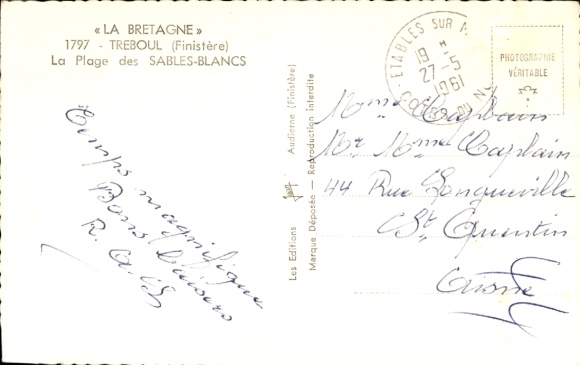 « LA BRETAGNE »
1797 - TREBOUL (Finistère)
La Plage des SABLES-BLANCS
ETABLES SUR
19 H
27-5
1961
COTES DU N
PHOTOGRAPHIE
VÉRITABLE
Temps magnifique
Bons baisers
R.
Les Editions Jean Audierne (Finistère)
Marque Déposée - Reproduction interdite
Mme Caplain
Mr Mme Caplain
44 Rue Longueville
St Quentin
Aisne